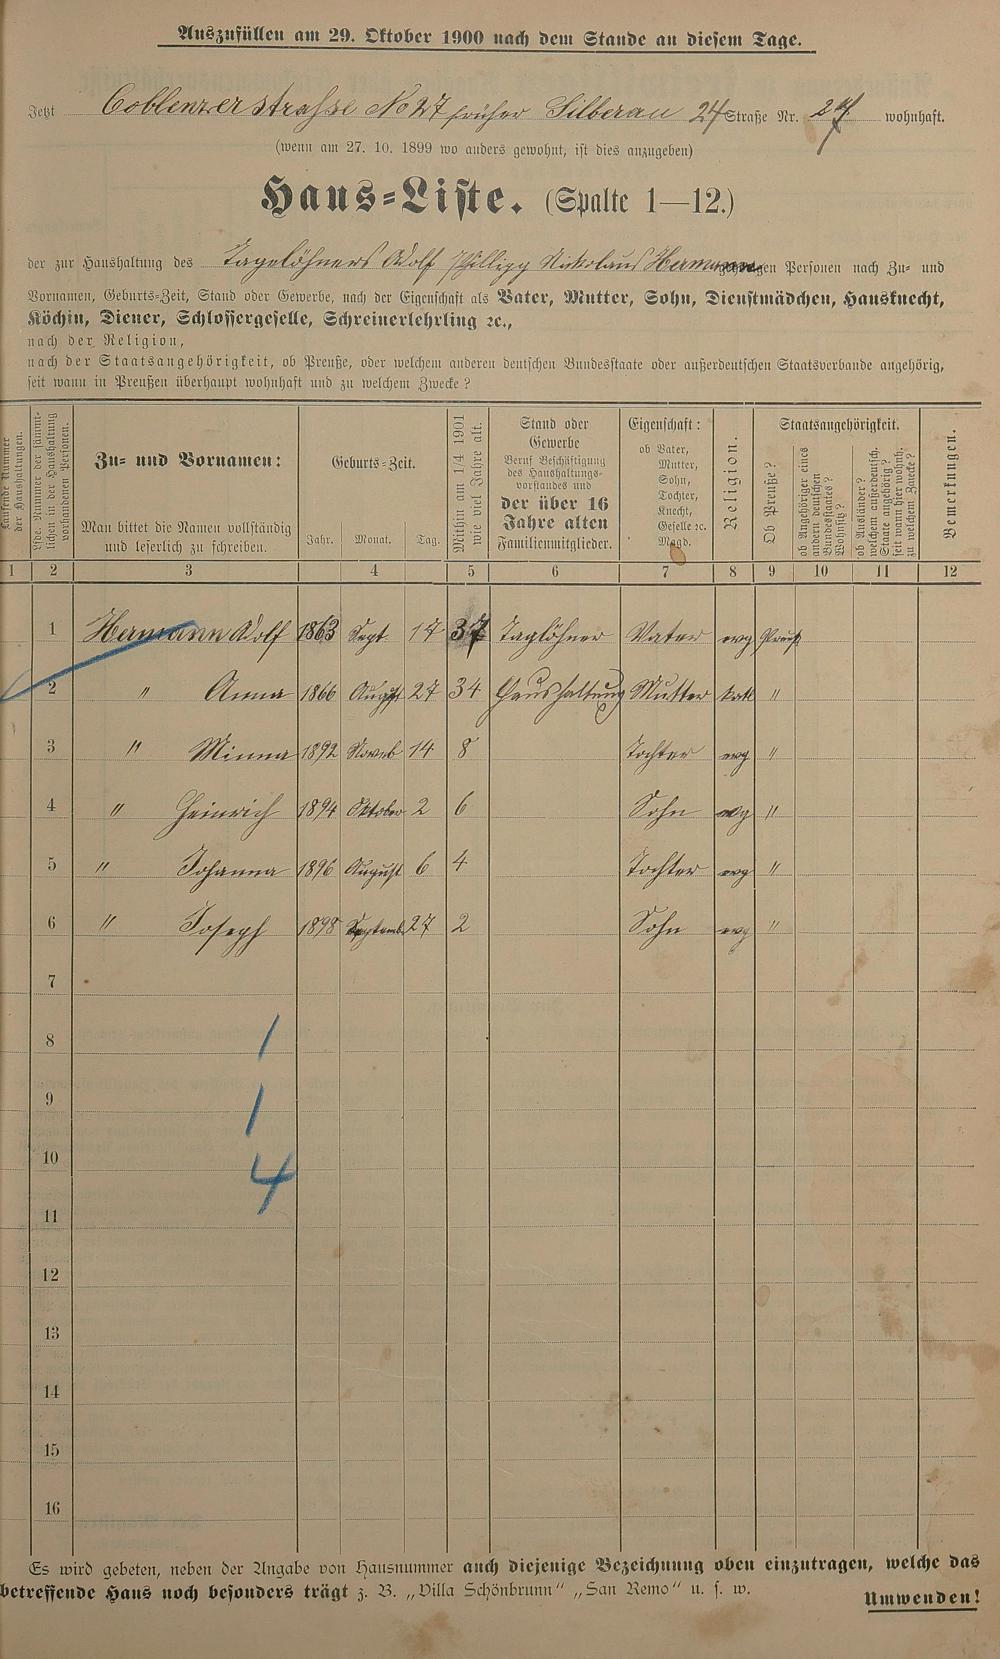 Auszufüllen am 29. Oktober 1900 nach dem Stande an diesem Tage.
Jetzt Coblenzerstrasse No 27 früher Silberau 24 Straße Nr. 24 wohnhaft.
(wenn am 27. 10. 1899 wo anders gewohnt, ist dies anzugeben)
Haus-Liste. (Spalte 1—12.)
der zur Haushaltung des Tagelöhners Adolf Phillipp Nickolaus Hermann gehörigen Personen nach Zu- und
Vornamen, Geburts-Zeit, Stand oder Gewerbe, nach der Eigenschaft als Vater, Mutter, Sohn, Dienstmädchen, Hausknecht,
Köchin, Diener, Schlossergeselle, Schreinerlehrling ꝛc.,
nach der Religion,
nach der Staatsangehörigkeit, ob Preuße, oder welchem anderen deutschen Bundesstaate oder außerdeutschen Staatsverbande angehörig,
seit wann in Preußen überhaupt wohnhaft und zu welchem Zwecke?
Laufende Nummer
der Haushaltungen.
Lfde. Nummer der sämmt-
lichen in der Haushaltung
vorhandenen Personen.
Zu- und Vornamen:
Man bittet die Namen vollständig
und leserlich zu schreiben.
Geburts-Zeit.
Jahr. Monat. Tag.
Mithin am 1/4 1901
wie viel Jahre alt.
Stand oder
Gewerbe
Beruf Beschäftigung
des Haushaltungs-
vorstandes und
der über 16
Jahre alten
Familienmitglieder.
Eigenschaft:
ob Vater,
Mutter,
Sohn,
Tochter,
Knecht,
Geselle ꝛc.
Magd.
Religion.
Staatsangehörigkeit.
Ob Preuße?
ob Angehöriger eines
andern deutschen
Bundesstaates?
Wohnsitz?
ob Ausländer?
welchem außerdeutsch.
Staate angehörig?
seit wann hier wohnh.
zu welchem Zwecke?
Bemerkungen.
1 2 3 4 5 6 7 8 9 10 11 12
1 Hermann Adolf 1863 Sept 17 37 Taglöhner Vater evg Preuß
2 " Anna 1866 August 27 34 Haushaltung Mutter kath "
3 " Minna 1892 Novmb 14 8 Tochter evg "
4 " Heinrich 1894 Oktober 2 6 Sohn evg "
5 " Johanna 1896 August 6 4 Tochter evg "
6 " Joseph 1898 Septemb 27 2 Sohn evg "
7
8 1
9 1
10 4
11
12
13
14
15
16
Es wird gebeten, neben der Angabe von Hausnummer auch diejenige Bezeichnung oben einzutragen, welche das
betreffende Haus noch besonders trägt z. B. „Villa Schönbrunn" „San Remo" u. s. w.
Umwenden!